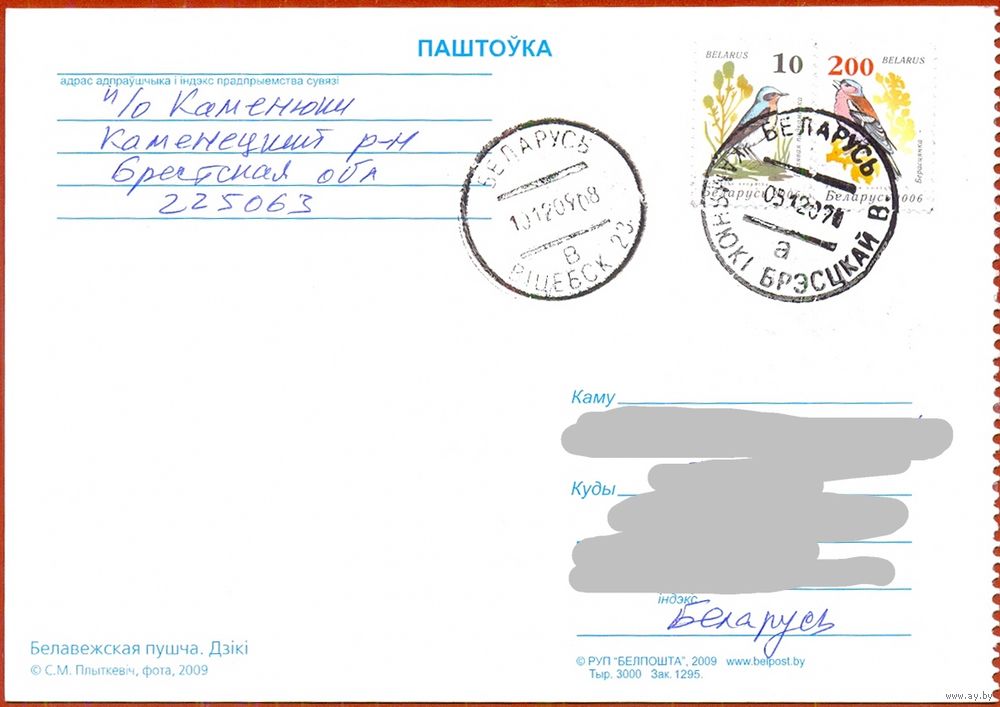 ПАШТОЎКА
адрас адпраўшчыка і індэкс прадпрыемства сувязі
п/о Каменюки
Каменецкий р-н
Брестская обл
225063
БЕЛАРУСЬ
10120908
В
ВІЦЕБСК 23
BELARUS
10
200
BELARUS
Беларусь
2006
Беларусь 2006
БЕЛАРУСЬ
051209
а
КАМЯНЮКІ БРЭСЦКАЙ В
Каму
Куды
індэкс
Беларусь
Белавежская пушча. Дзікі
© С.М. Плыткевіч, фота, 2009
© РУП "БЕЛПОШТА", 2009 www.belpost.by
Тыр. 3000 Зак. 1295.
www.ay.by